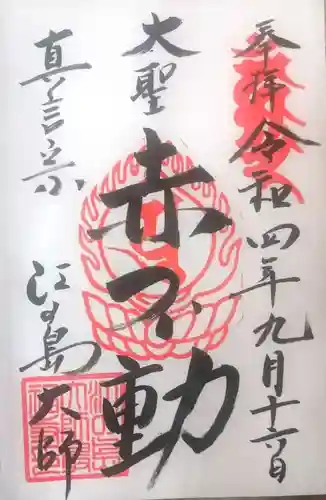 奉拝
令和四年九月十六日
大聖
赤不動
真言宗
江の島
大師